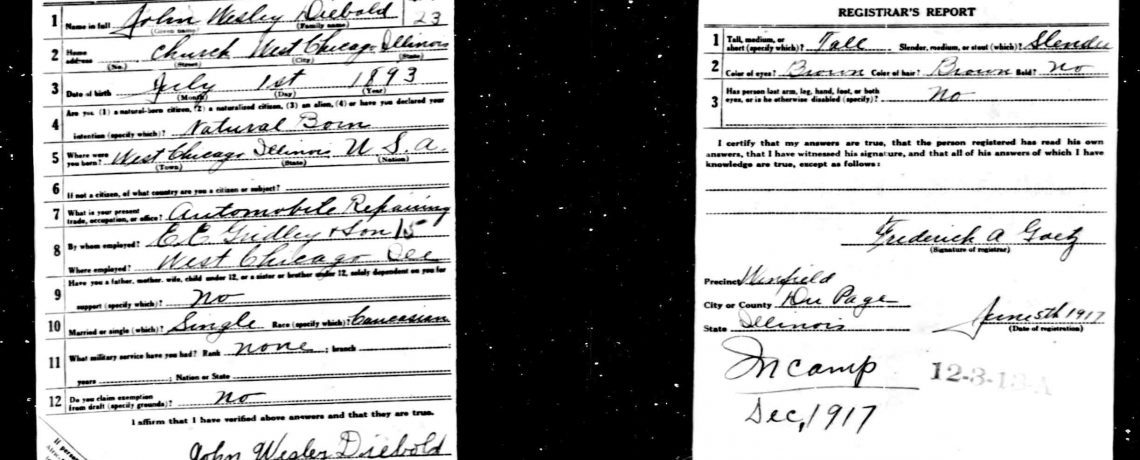 1 Name in full John Wesley Diebold 23
(Given name) (Family name)
2 Home address Church West Chicago Illinois
(No.) (Street) (City) (State)
3 Date of birth July 1st 1893
(Month) (Day) (Year)
Are you (1) a natural-born citizen, (2) a naturalized citizen, (3) an alien, (4) or have you declared your
4 intention (specify which)? Natural Born
5 Where were you born? West Chicago Illinois U. S. A.
(Town) (State) (Nation)
6 If not a citizen, of what country are you a citizen or subject?
7 What is your present trade, occupation, or office? Automobile Repairing
8 By whom employed? E. E. Gridley & Son 15
Where employed? West Chicago Ill
Have you a father, mother, wife, child under 12, or a sister or brother under 12, solely dependent on you for
9 support (specify which)? No
10 Married or single (which)? Single Race (specify which)? Caucasian
11 What military service have you had? Rank none ; branch
years ; Nation or State
12 Do you claim exemption from draft (specify grounds)? No
I affirm that I have verified above answers and that they are true.
John Wesley Diebold
If person
REGISTRAR'S REPORT
1 Tall, medium, or short (specify which)? Tall Slender, medium, or stout (which)? Slender
2 Color of eyes? Brown Color of hair? Brown Bald? No
3 Has person lost arm, leg, hand, foot, or both eyes, or is he otherwise disabled (specify)? No
I certify that my answers are true, that the person registered has read his own
answers, that I have witnessed his signature, and that all of his answers of which I have
knowledge are true, except as follows:
Frederick A Goetz
(Signature of registrar)
Precinct Winfield
City or County Du Page
State Illinois
June 5th 1917
(Date of registration)
In camp
12-3-13-A
Dec, 1917